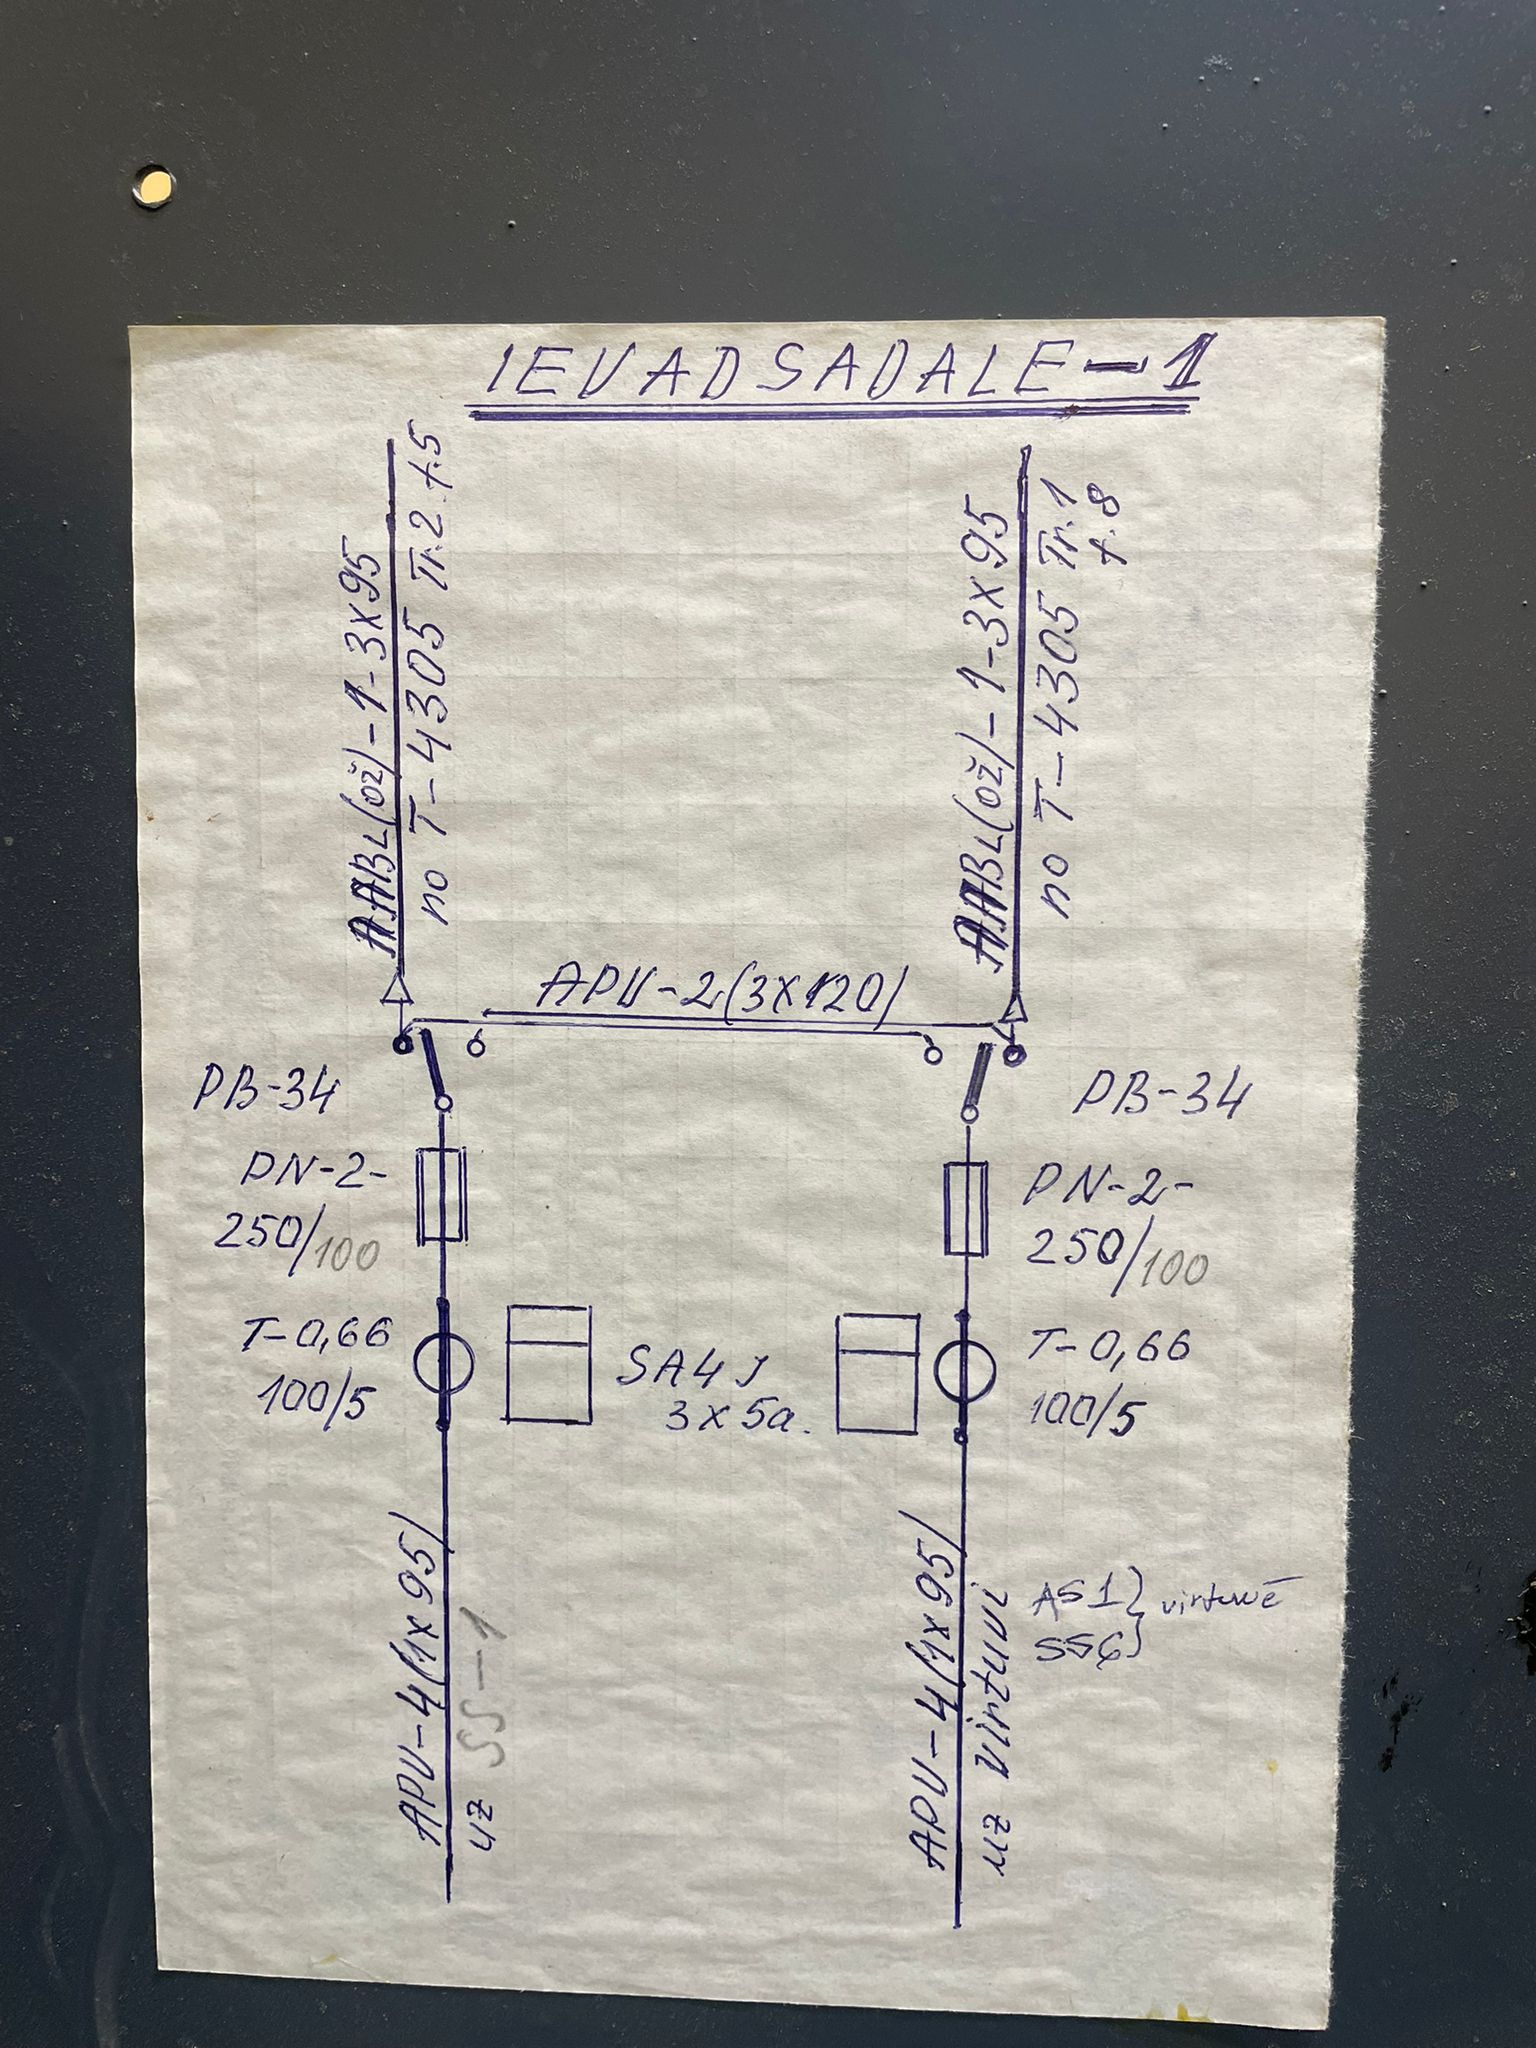 IEVADSADALE-1
AABL(ož)-1-3x95
no T-4305 Tr.2 f.5
AABL(ož)-1-3x95
no T-4305 Tr.1
f.8
APV-2(3x120)
PB-34
PB-34
PN-2-
250/100
PN-2-
250/100
T-0,66
100/5
SA4J
3x5a.
T-0,66
100/5
APV-4(1x95)
uz SS-1
APV-4(1x95)
uz virtuvi
AS1 } virtuvē
SS6